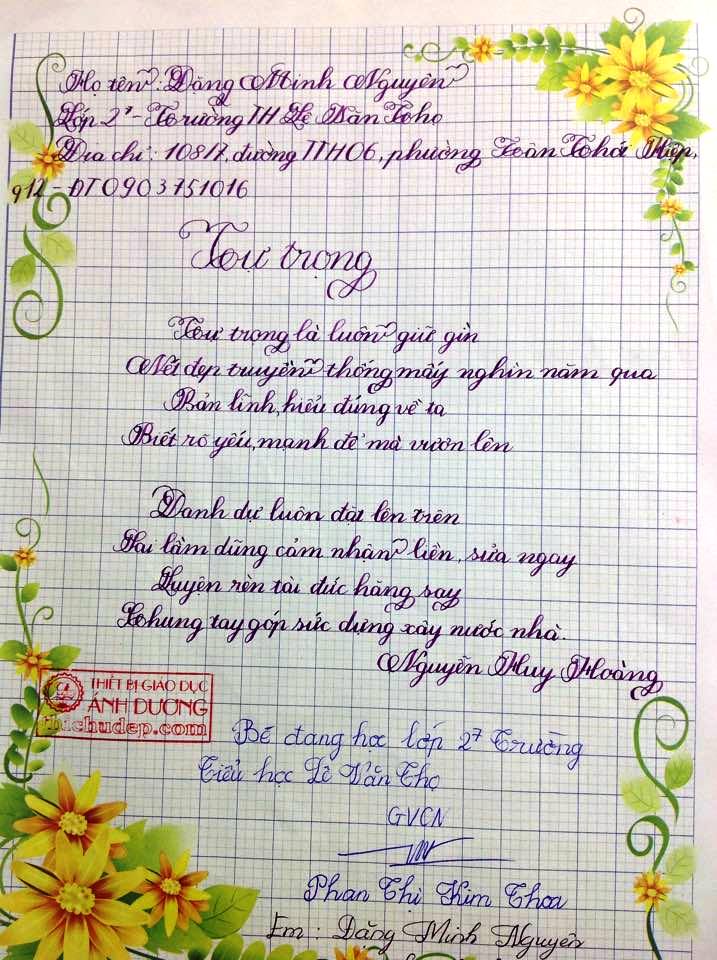 Họ tên: Đặng Minh Nguyên
Lớp 2⁷ - Trường TH Lê Văn Thọ
Địa chỉ: 108/7, đường TTH06, phường Tân Thới Hiệp,
q12 - ĐT 0903751016
Tự trọng
Tự trọng là luôn giữ gìn
Nét đẹp truyền thống mấy nghìn năm qua
Bản lĩnh, hiểu đúng về ta
Biết rõ yếu, mạnh để mà vươn lên
Danh dự luôn đặt lên trên
Sai lầm dũng cảm nhận liền, sửa ngay
Luyện rèn tài đức hăng say
Chung tay góp sức dựng xây nước nhà.
Nguyễn Huy Hoàng
THIẾT BỊ GIÁO DỤC
ÁNH DƯƠNG
thichudep.com
Bé đang học lớp 2⁷ Trường
Tiểu học Lê Văn Thọ
GVCN
Phan Thị Kim Thoa
Em: Đặng Minh Nguyên